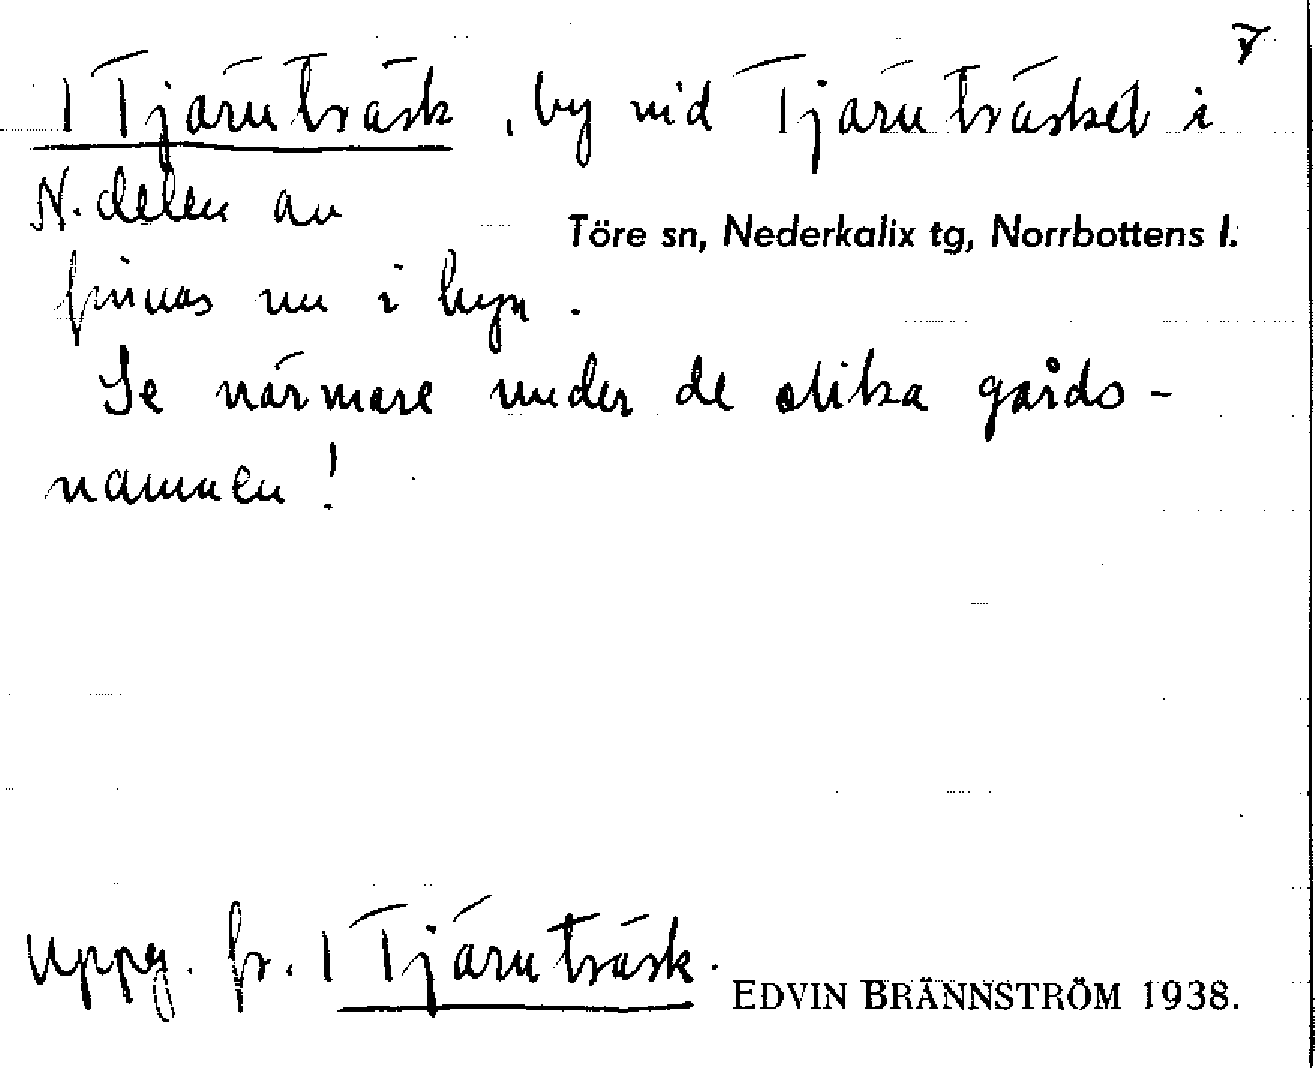 1 Tjärnträsk, by vid Tjärnträsket i
N. delen av
Töre sn, Nederkalix tg, Norrbottens l.
finnas nu i byn.
Se närmare under de olika gårds-
namnen!
Uppg. fr. 1 Tjärnträsk.
EDVIN BRÄNNSTRÖM 1938.